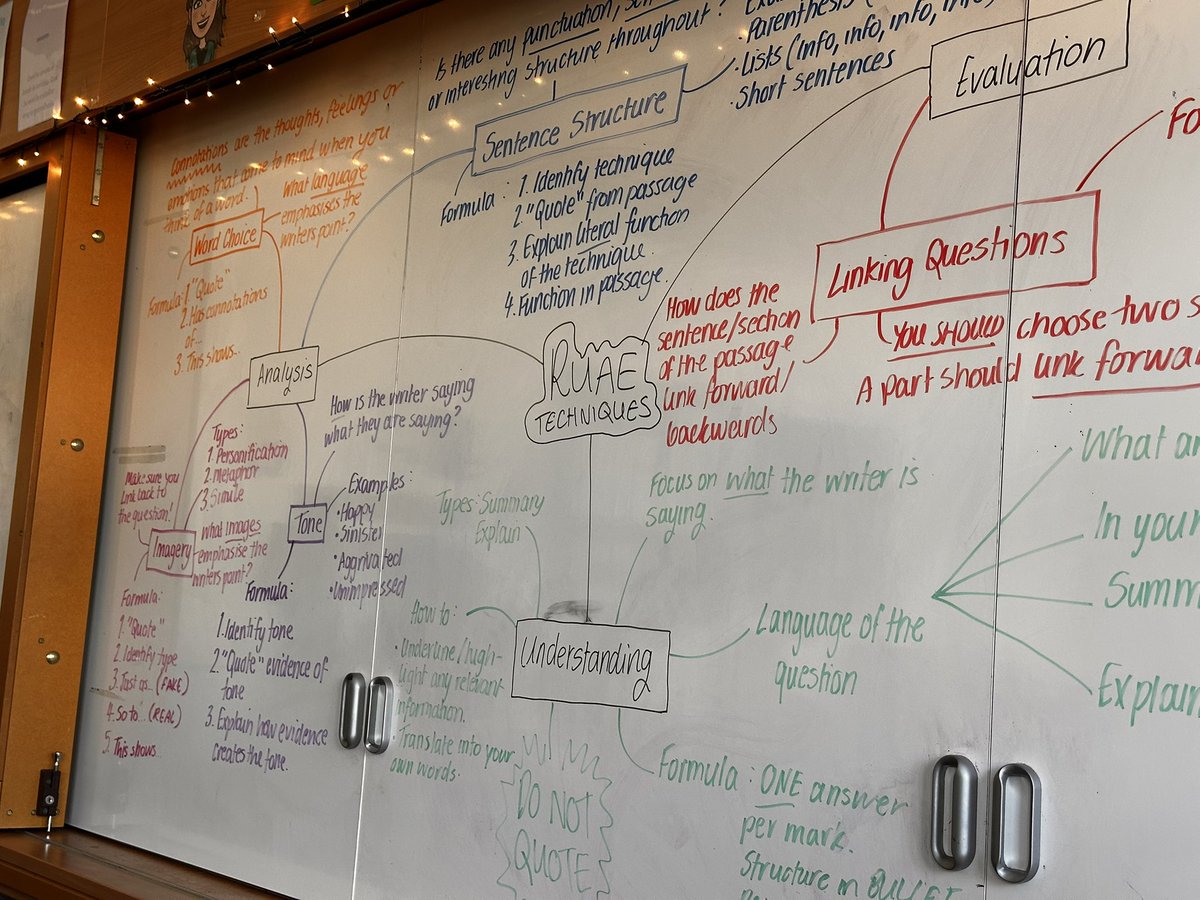 Is there any punctuation,
or interesting structure throughout?
Parenthesis
· Lists (info, info, info, info,
· Short sentences
Sentence Structure
Formula : 1. Identify technique
2. "Quote" from passage
3. Explain literal function
of the technique.
4. Function in passage.
Evaluation
Connotations are the thoughts, feelings or
emotions that come to mind when you
think of a word!
What language
emphasises the
writers point?
Word Choice
Formula: 1. "Quote"
2. Has connotations
of...
3. This shows...
Analysis
How is the writer saying
what they are saying?
RUAE
TECHNIQUES
Linking Questions
How does the
sentence/section
of the passage
link forward/
backwards
YOU SHOULD choose two
A part should link
Types:
1. Personification
2. Metaphor
3. Simile
Make sure you
link back to
the question!
Imagery
What images
emphasise the
writers point?
Formula:
1. "Quote"
2. Identify type
3. Just as... (FAKE)
4. So to... (REAL)
5. This shows...
Tone
Examples:
· Happy
· Sinister
· Aggrivated
· Unimpressed
Formula:
1. Identify tone
2. "Quote" evidence of
tone
3. Explain how evidence
creates the tone.
Types: Summary
Explain
Focus on what the writer is
saying.
How to:
· Underline/high-
light any relevant
information.
· Translate into your
own words.
Understanding
Language of the
question
What
In your
Explain
DO NOT
QUOTE
Formula : ONE answer
per mark.
Structure in BULLET